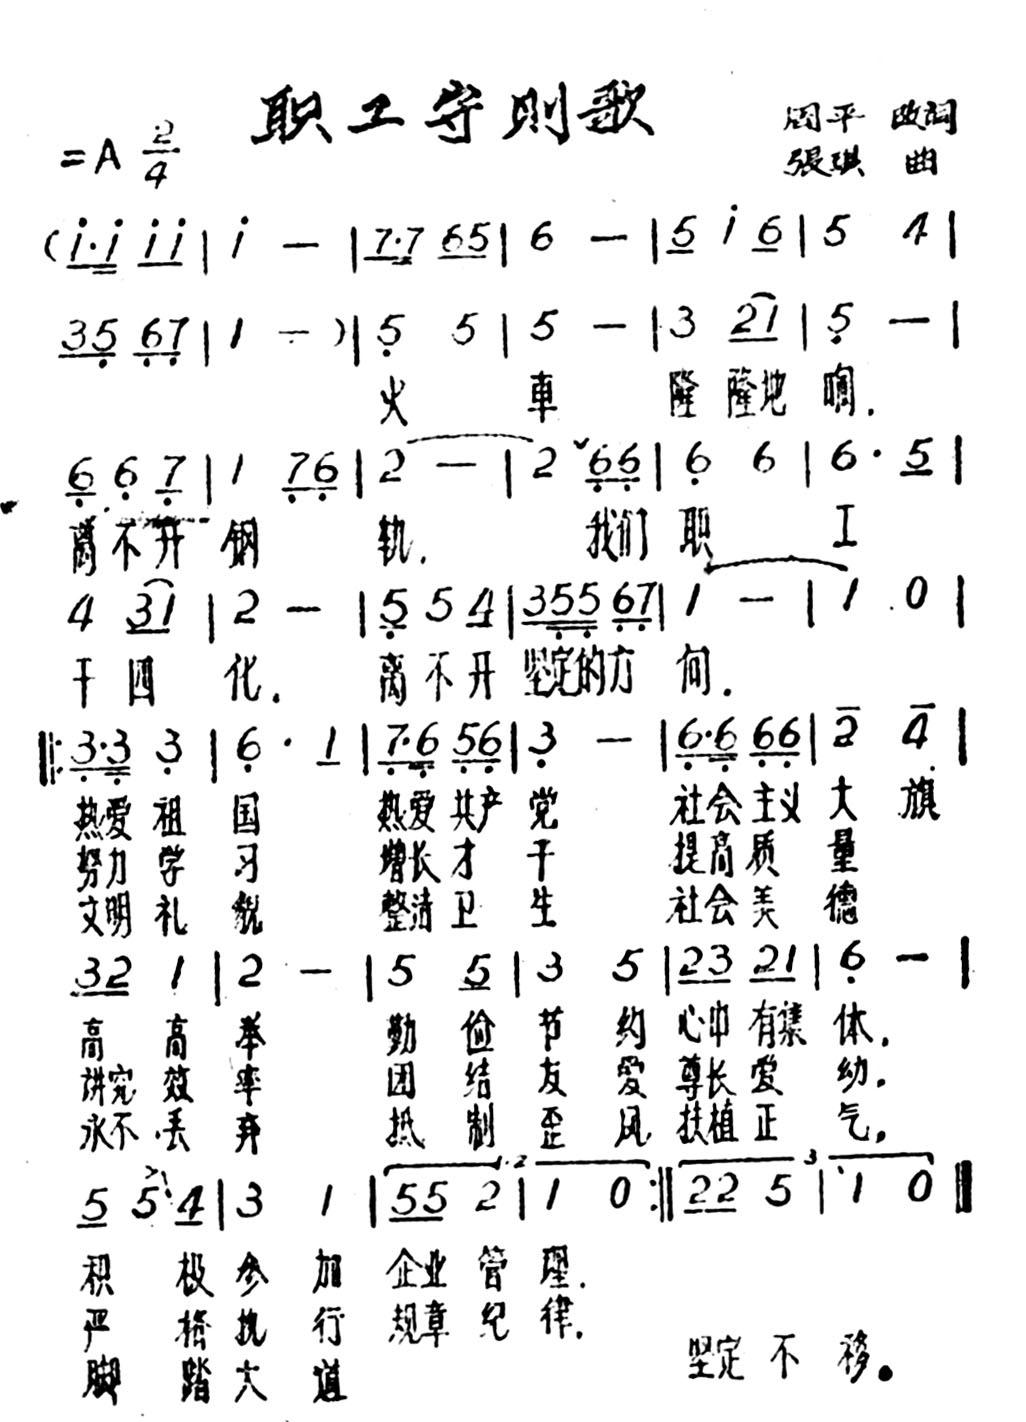 职工守则歌
周平 改词
=A 2/4
張琪 曲
(i·i i i | i — | 7·7 65 | 6 — | 5 i 6 | 5 4 |
35 67 | 1 — ) | 5 5 | 5 — | 3 21 | 5 — |
火 車 隆 隆地 响.
6 6 7 | 1 76 | 2 — | 2 ˇ66 | 6 6 | 6· 5 |
离 不 开 钢 轨. 我们 职 工
4 31 | 2 — | 5 5 4 | 355 67 | 1 — | 1 0 |
干 四 化. 离 不 开 坚定的方 向.
‖: 3·3 3 | 6· 1 | 7·6 56 | 3 — | 6·6 66 | 2 4 |
热爱 祖 国 热爱 共产 党 社会 主义 大 旗
努力 学 习 增长 才 干 提高 质 量
文明 礼 貌 整洁 卫 生 社会 美 德
32 1 | 2 — | 5 5 | 3 5 | 23 21 | 6 — |
高 高 举 勤 俭 节 约 心中 有集 体.
讲究 效 率 团 结 友 爱 尊长 爱 幼.
永不 丢 弃 抵 制 歪 风 扶植 正 气.
1·2 3
5 5 4 | 3 1 | 55 2 | 1 0 :‖ 22 5 | 1 0 ‖
积 极 参 加 企业 管 理.
严 格 执 行 规章 纪 律.
脚 踏 大 道 坚定 不 移。